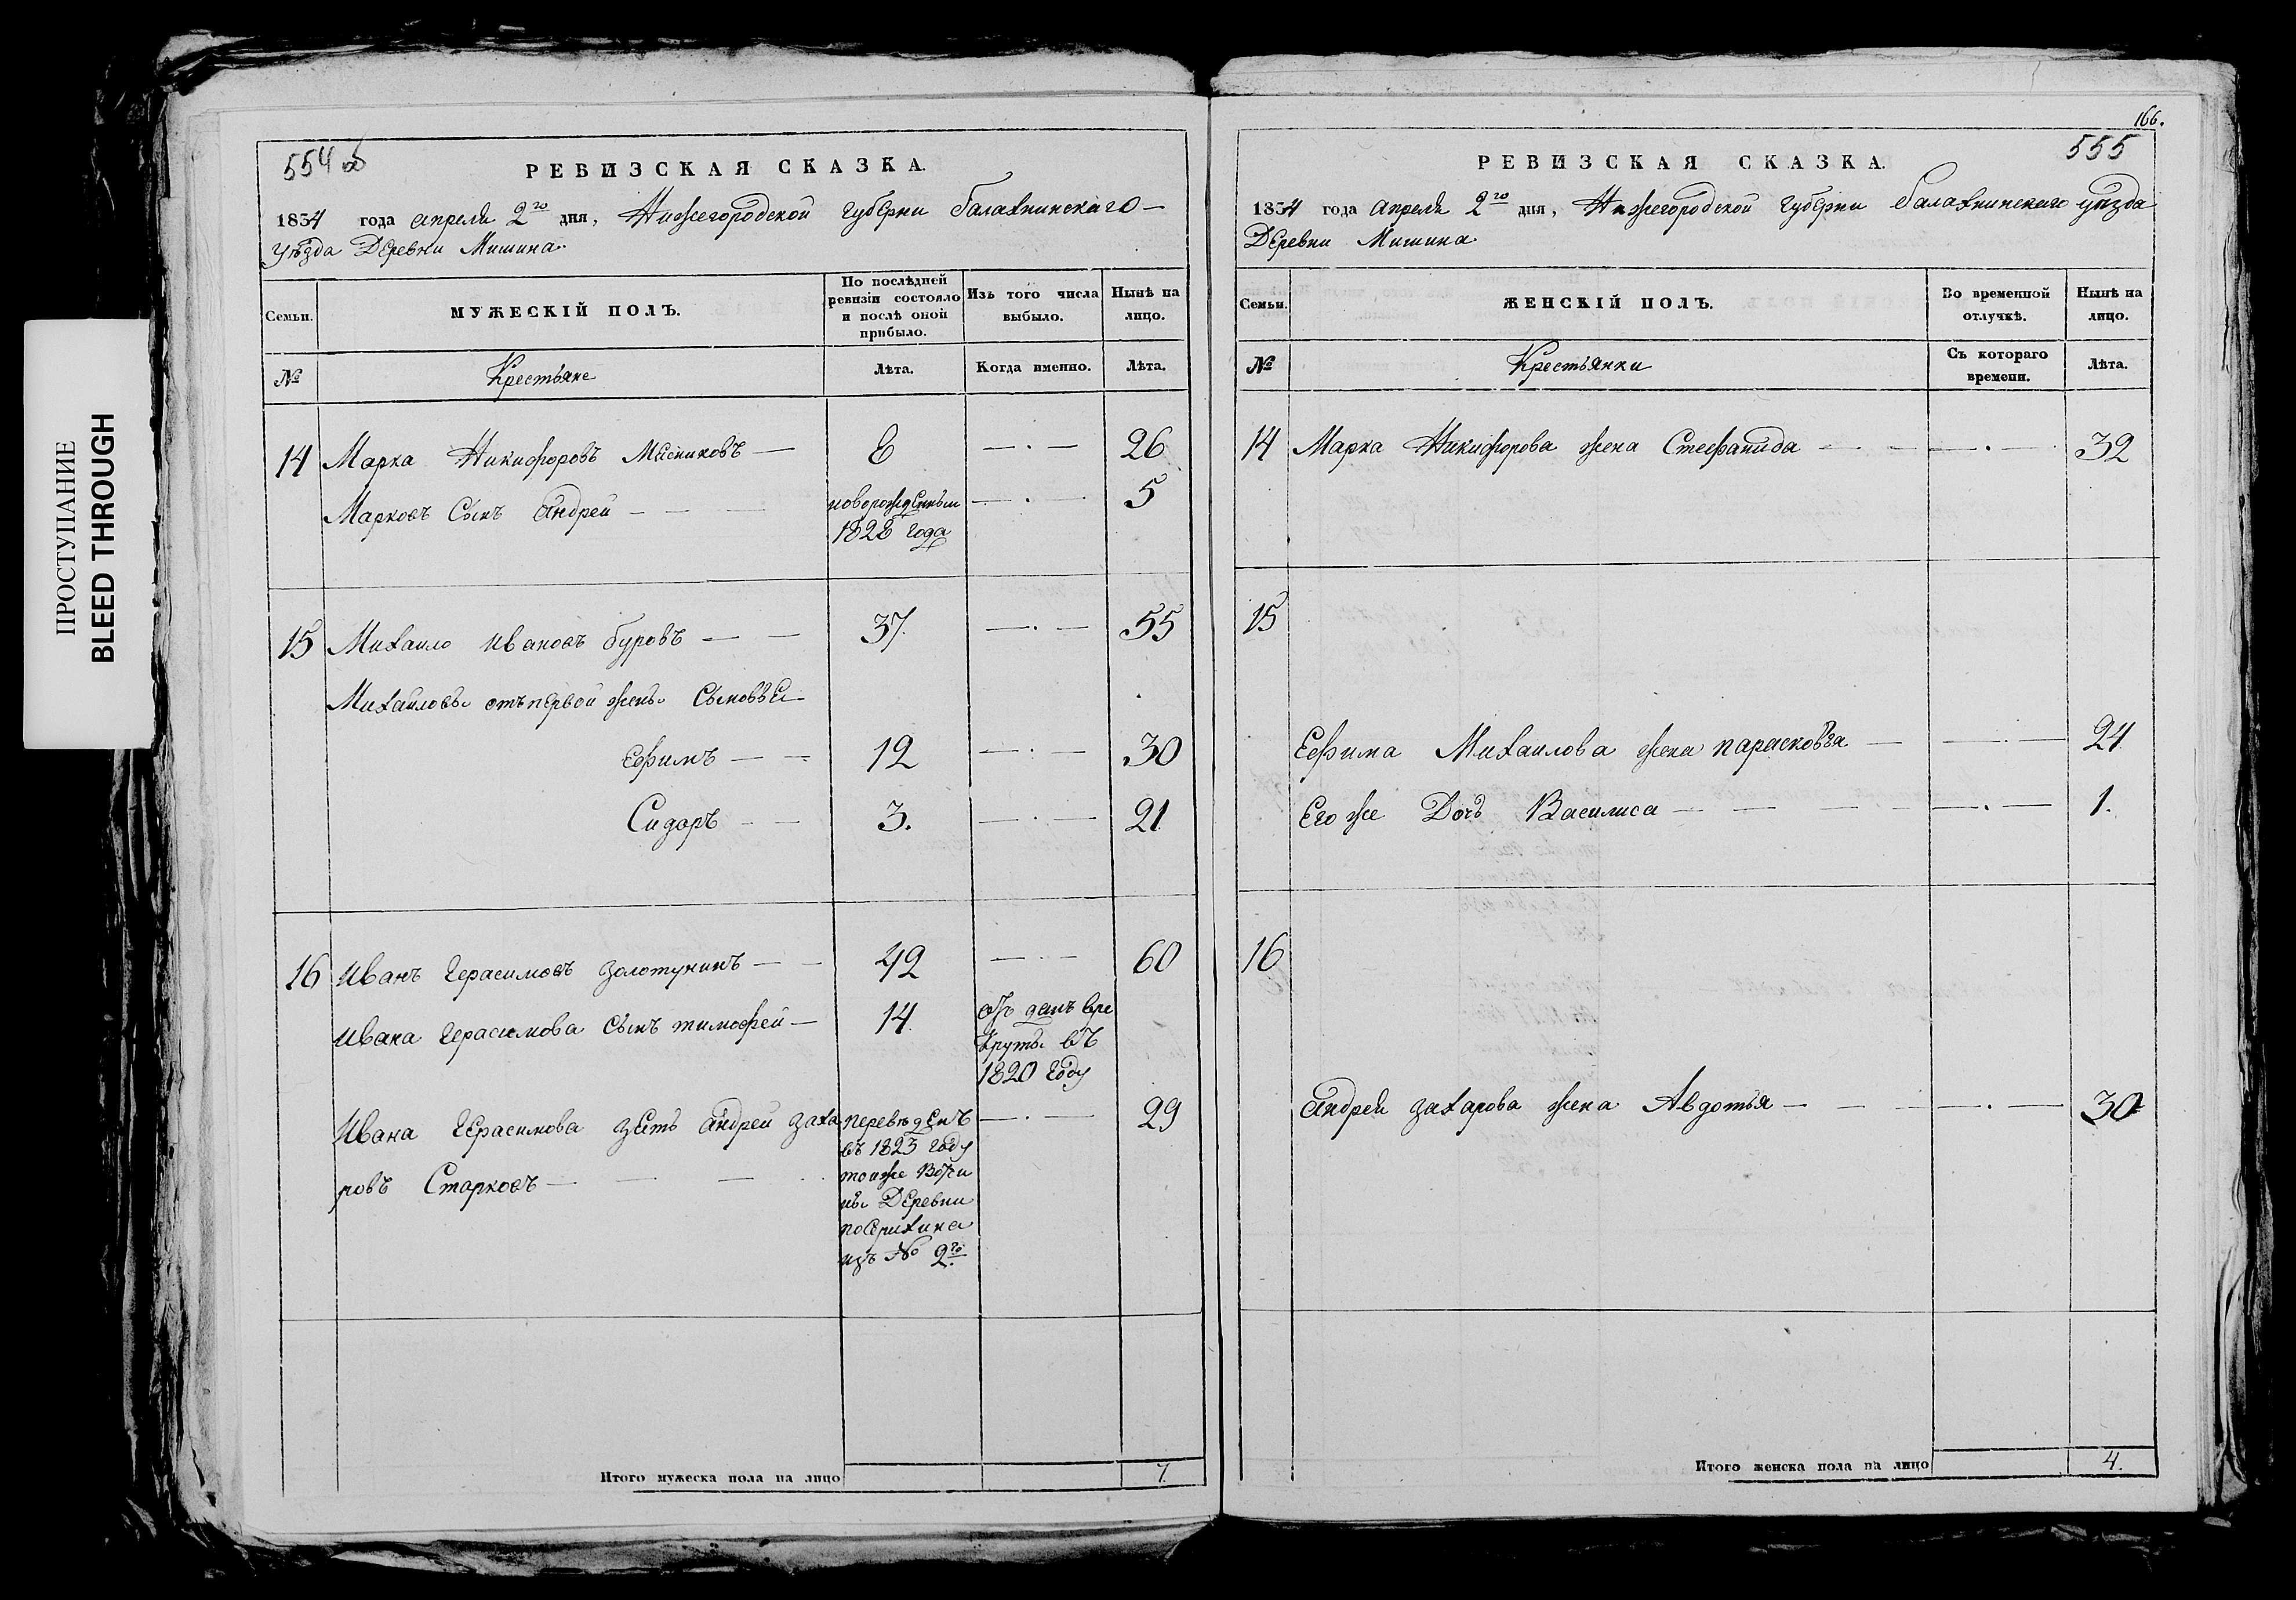 ПРОСТУПАНИЕ
BLEED THROUGH
554 об
РЕВИЗСКАЯ СКАЗКА.
1834 года апреля 2го дня, Нижегородской губерни балахнинскаго
уѣзда Деревни Мишина.
Семьи.
МУЖЕСКІЙ ПОЛЪ.
По послѣдней
ревизіи состояло
и послѣ оной
прибыло.
Изъ того числа
выбыло.
Нынѣ на
лицо.
№
Крестьяне
Лѣта.
Когда именно.
Лѣта.
14 Марка Никифоровъ Месниковъ — 8 —·— 26
Марковъ Сынъ Андреи — новорожденныи —·— 5
1828 года
15 Михаило Ивановъ буровъ — 37. —·— 55
Михаиловы отъ первои жены Сыновьеи
Ефимъ — 12 —·— 30
Сидоръ — 3. —·— 21
16 Иванъ Герасимовъ золотунинъ — 42 —·— 60
Ивана Герасимова Сынъ тимофеи — 14.
отданъ вре
круты въ
1820 году
Ивана Герасимова зеть андреи заха
ровъ Старковъ —
переведенъ —·— 29
въ 1823 году
тоиже Вотчи
ны Деревни
из № 2го
Итого мужеска пола на лицо 7.
166.
555
РЕВИЗСКАЯ СКАЗКА.
1834 года Апреля 2го дня, Нижегородской губерни балахнинскаго уѣзда
Деревни Мишина.
Семьи.
ЖЕНСКІЙ ПОЛЪ.
Во временной
отлучкѣ.
Нынѣ на
лицо.
№
Крестьянки
Съ котораго
времени.
Лѣта.
14 Марка Никифорова жена Стефанида — —·— 32
15
Ефима Михаилова жена парасковья — —·— 24
Его же Дочь Василиса — —·— 1.
16
Андрея захарова жена Авдотья — —·— 30
Итого женска пола на лицо 4.